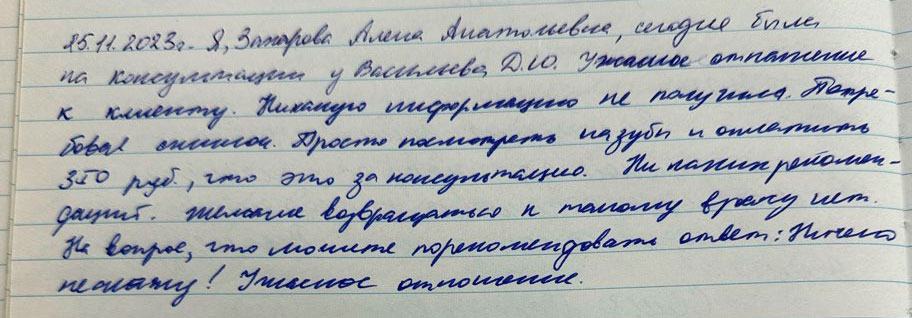 25.11.2023г. Я, Захарова Алена Анатольевна, сегодня была
на консультации у Васильева Д.Ю. Ужасное отношение
к клиенту. Никакую информацию не получила. Потре-
бовал снимок. Просто посмотреть на зубы и оплатить
350 руб., что это за консультацию. Ни каких рекомен-
даций. Желание возвращаться к такому врачу нет.
На вопрос, что можете порекомендовать ответ: Ничего
не скажу! Ужасное отношение.